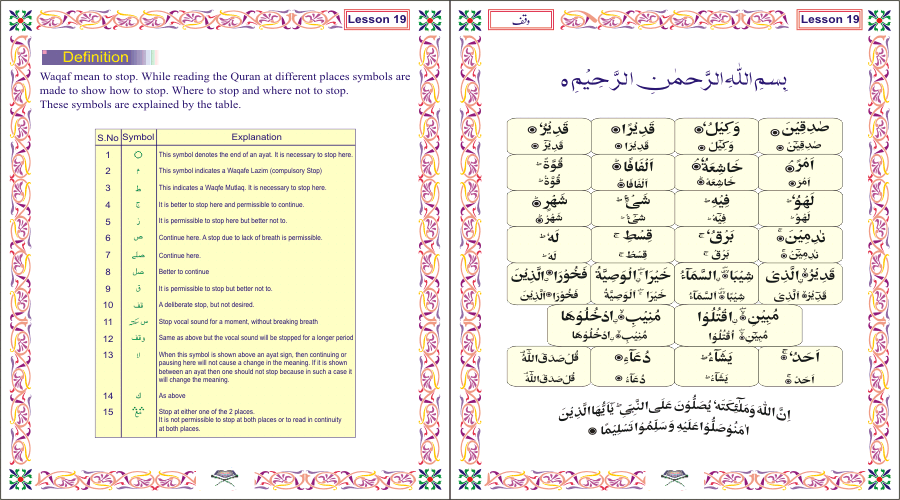 Lesson 19
Definition
Waqaf mean to stop. While reading the Quran at different places symbols are
made to show how to stop. Where to stop and where not to stop.
These symbols are explained by the table.
S.No Symbol Explanation
1 This symbol denotes the end of an ayat. It is necessary to stop here.
2 م This symbol indicates a Waqafe Lazim (compulsory Stop)
3 ط This indicates a Waqfe Mutlaq. It is necessary to stop here.
4 ج It is better to stop here and permissible to continue.
5 ز It is permissible to stop here but better not to.
6 ص Continue here. A stop due to lack of breath is permissible.
7 صلے Continue here.
8 صل Better to continue
9 ق It is permissible to stop but better not to.
10 قف A deliberate stop, but not desired.
11 Stop vocal sound for a moment, without breaking breath
12 وقف Same as above but the vocal sound will be stopped for a longer period
13 لا When this symbol is shown above an ayat sign, then continuing or
pausing here will not cause a change in the meaning. If it is shown
between an ayat then one should not stop because in such a case it
will change the meaning.
14 ك As above
15 Stop at either one of the 2 places.
It is not permissible to stop at both places or to read in continuity
at both places.
وقف
Lesson 19
بِسْمِ اللّٰهِ الرَّحْمٰنِ الرَّحِيْمِ
صٰدِقِيْنَ وَكِيْلٌ قَدِيْرًا قَدِيْرٌ
صٰدِقِيْنْ وَكِيْلْ قَدِيْرَا قَدِيْرْ
اَمْرٌ خَاشِعَةٌ اَلْفَافًا قُوَّةً
اَمْرْ خَاشِعَهْ اَلْفَافَا قُوَّةْ
لَهُوَ فِيْهِ شَىْءٌ شَهْرٍ
لَهُوْ فِيْهْ شَىْءْ شَهْرْ
نٰدِمِيْنَ بَرْقٌ قِسْطِ لَهٗ
نٰدِمِيْنْ بَرْقْ قِسْطْ لَهْ
قَدِيْرُ الَّذِىْ شِيْبَا السَّمَآءُ خَيْرَا الْوَصِيَّةُ فَخُوْرَا الَّذِيْنَ
قَدِيْرْ الَّذِىْ شِيْبَا السَّمَآءُ خَيْرَا الْوَصِيَّةُ فَخُوْرَا الَّذِيْنَ
مُبِيْنِ اقْتُلُوْا مُنِيْبِ ادْخُلُوْهَا
مُبِيْنْ اُقْتُلُوْا مُنِيْبْ ادْخُلُوْهَا
اَحَدٌ يَشَآءُ دُعَآءِ قُلْ صَدَقَ اللّٰهُ
اَحَدْ يَشَآءْ دُعَآءْ قُلْ صَدَقَ اللّٰهْ
اِنَّ اللّٰهَ وَمَلٰٓئِكَتَهٗ يُصَلُّوْنَ عَلَى النَّبِىِّ يٰٓاَيُّهَا الَّذِيْنَ
اٰمَنُوْا صَلُّوْا عَلَيْهِ وَسَلِّمُوْا تَسْلِيْمًا